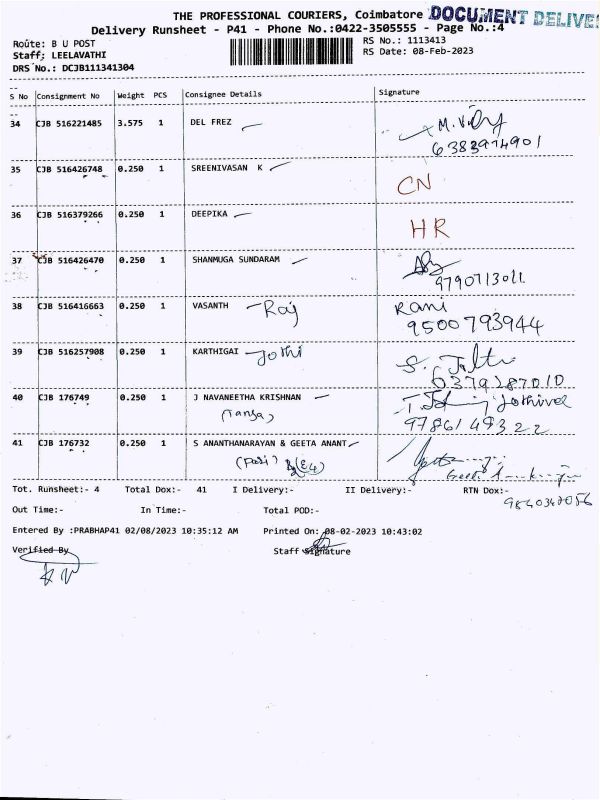 THE PROFESSIONAL COURIERS, Coimbatore DOCUMENT DELIVE
Delivery Runsheet - P41 - Phone No.:0422-3505555 - Page No.:4
Route: B U POST RS No.: 1113413
Staff; LEELAVATHI RS Date: 08-Feb-2023
DRS No.: DCJB111341304
S No Consignment No Weight PCS Consignee Details Signature
34 CJB 516221485 3.575 1 DEL FREZ
6383974901
35 CJB 516426748 0.250 1 SREENIVASAN K
CN
36 CJB 516379266 0.250 1 DEEPIKA
HR
37 CJB 516426470 0.250 1 SHANMUGA SUNDARAM
9790713011
38 CJB 516416663 0.250 1 VASANTH Raj Rani
9500793944
39 CJB 516257908 0.250 1 KARTHIGAI Jothi
6379287010
40 CJB 176749 0.250 1 J NAVANEETHA KRISHNAN
(Tansa)
9786149322
41 CJB 176732 0.250 1 S ANANTHANARAYAN & GEETA ANANT
Tot. Runsheet:- 4 Total Dox:- 41 I Delivery:- II Delivery:- RTN Dox:-
9840340056
Out Time:- In Time:- Total POD:-
Entered By :PRABHAP41 02/08/2023 10:35:12 AM Printed On: 08-02-2023 10:43:02
Verified By Staff Signature